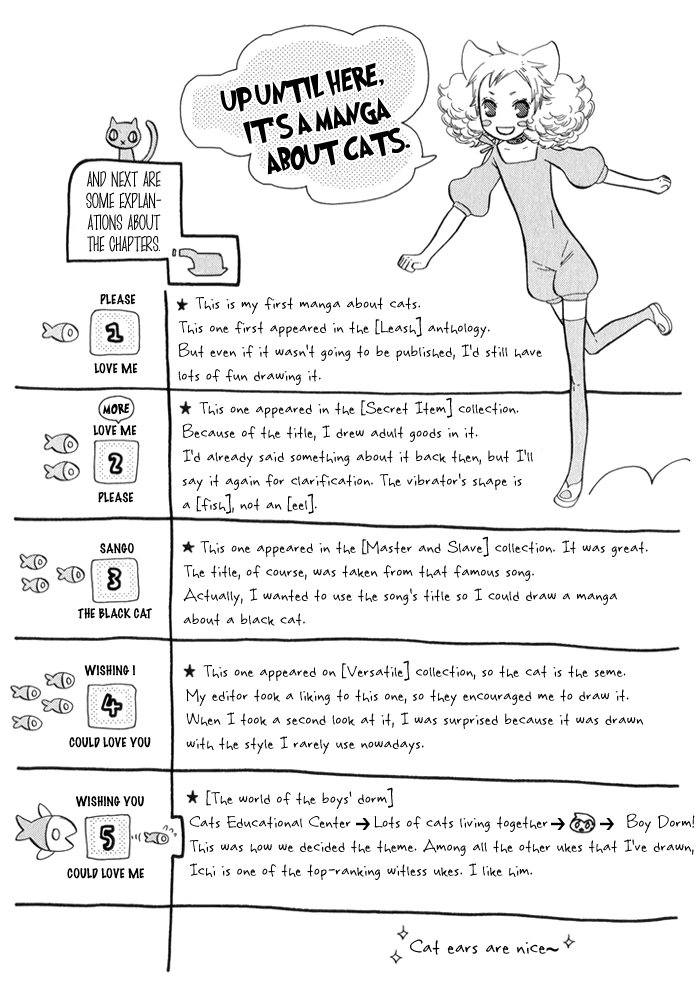 UP UNTIL HERE,
IT'S A MANGA
ABOUT CATS.
AND NEXT ARE
SOME EXPLAN-
ATIONS ABOUT
THE CHAPTERS.
PLEASE
1
LOVE ME
★ This is my first manga about cats.
This one first appeared in the [Leash] anthology.
But even if it wasn't going to be published, I'd still have
lots of fun drawing it.
MORE
LOVE ME
2
PLEASE
★ This one appeared in the [Secret Item] collection.
Because of the title, I drew adult goods in it.
I'd already said something about it back then, but I'll
say it again for clarification. The vibrator's shape is
a [fish], not an [eel].
SANGO
3
THE BLACK CAT
★ This one appeared in the [Master and Slave] collection. It was great.
The title, of course, was taken from that famous song.
Actually, I wanted to use the song's title so I could draw a manga
about a black cat.
WISHING I
4
COULD LOVE YOU
★ This one appeared on [Versatile] collection, so the cat is the seme.
My editor took a liking to this one, so they encouraged me to draw it.
When I took a second look at it, I was surprised because it was drawn
with the style I rarely use nowadays.
WISHING YOU
5
COULD LOVE ME
★ [The world of the boys' dorm]
Cats Educational Center → Lots of cats living together → → Boy Dorm!
This was how we decided the theme. Among all the other ukes that I've drawn,
Ichi is one of the top-ranking witless ukes. I like him.
Cat ears are nice~